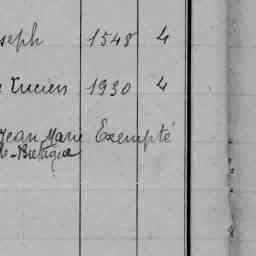 seph 1548 4
Lucien 1930 4
Jean Marie Exempté
Bretagne